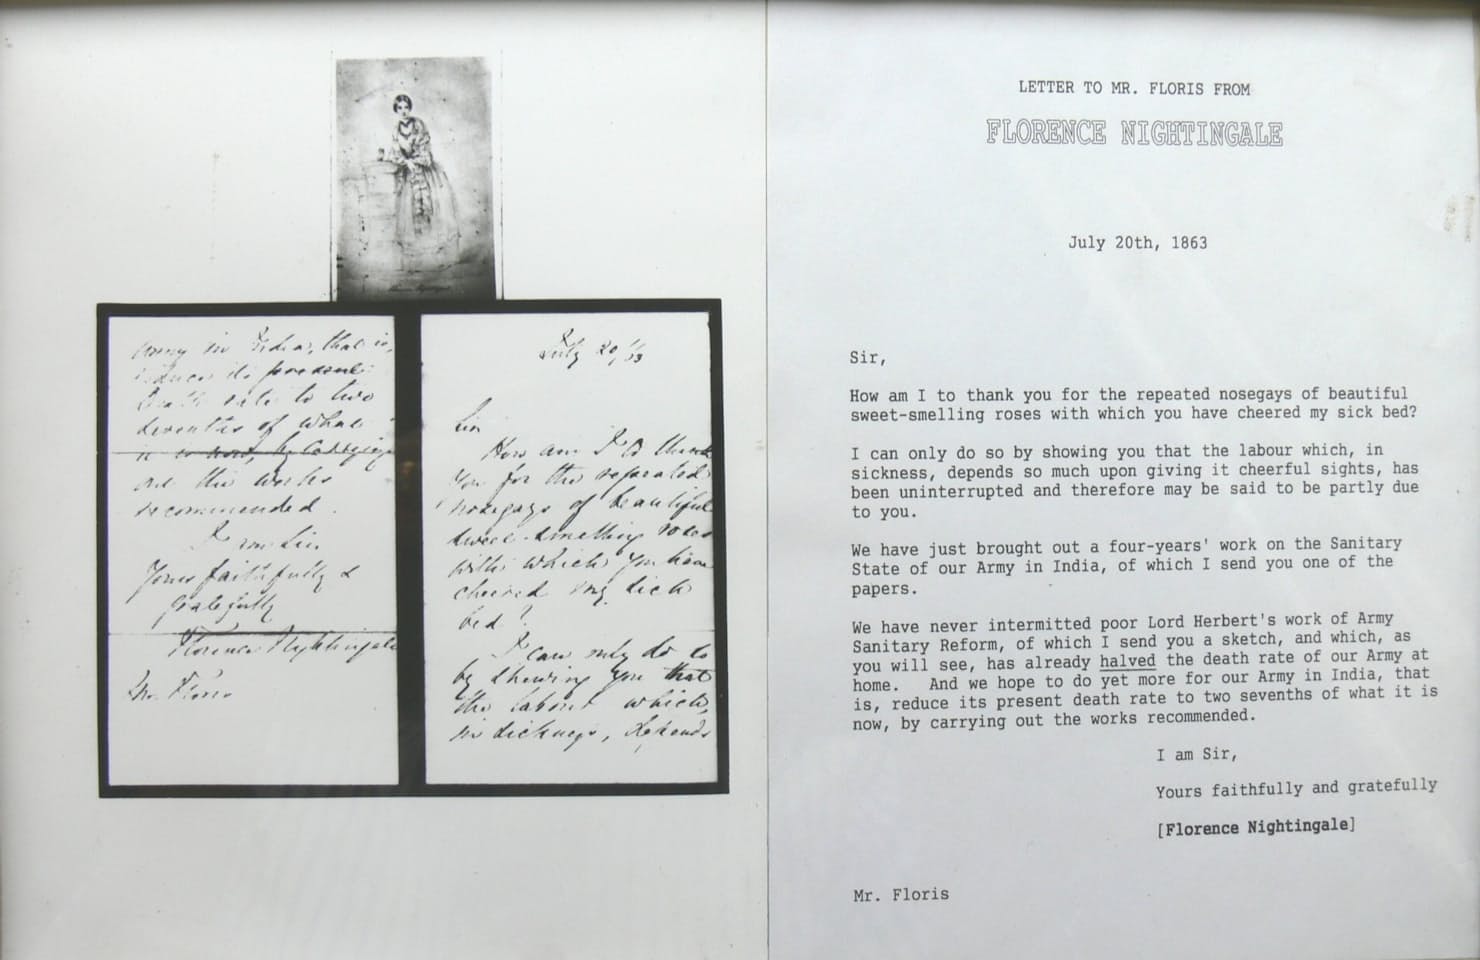 army in India, that is,
reduce its present
death rate to two
sevenths of what
it is now, by carrying
out the works
recommended.
I am Sir,
Yours faithfully &
gratefully
Florence Nightingale
Mr. Floris
July 20/63
Sir
How am I to thank
you for the repeated
nosegays of beautiful
sweet-smelling roses
with which you have
cheered my sick
bed?
I can only do so
by shewing you that
the labour which,
in sickness, depends
LETTER TO MR. FLORIS FROM
FLORENCE NIGHTINGALE
July 20th, 1863
Sir,
How am I to thank you for the repeated nosegays of beautiful
sweet-smelling roses with which you have cheered my sick bed?
I can only do so by showing you that the labour which, in
sickness, depends so much upon giving it cheerful sights, has
been uninterrupted and therefore may be said to be partly due
to you.
We have just brought out a four-years' work on the Sanitary
State of our Army in India, of which I send you one of the
papers.
We have never intermitted poor Lord Herbert's work of Army
Sanitary Reform, of which I send you a sketch, and which, as
you will see, has already halved the death rate of our Army at
home. And we hope to do yet more for our Army in India, that
is, reduce its present death rate to two sevenths of what it is
now, by carrying out the works recommended.
I am Sir,
Yours faithfully and gratefully
[Florence Nightingale]
Mr. Floris